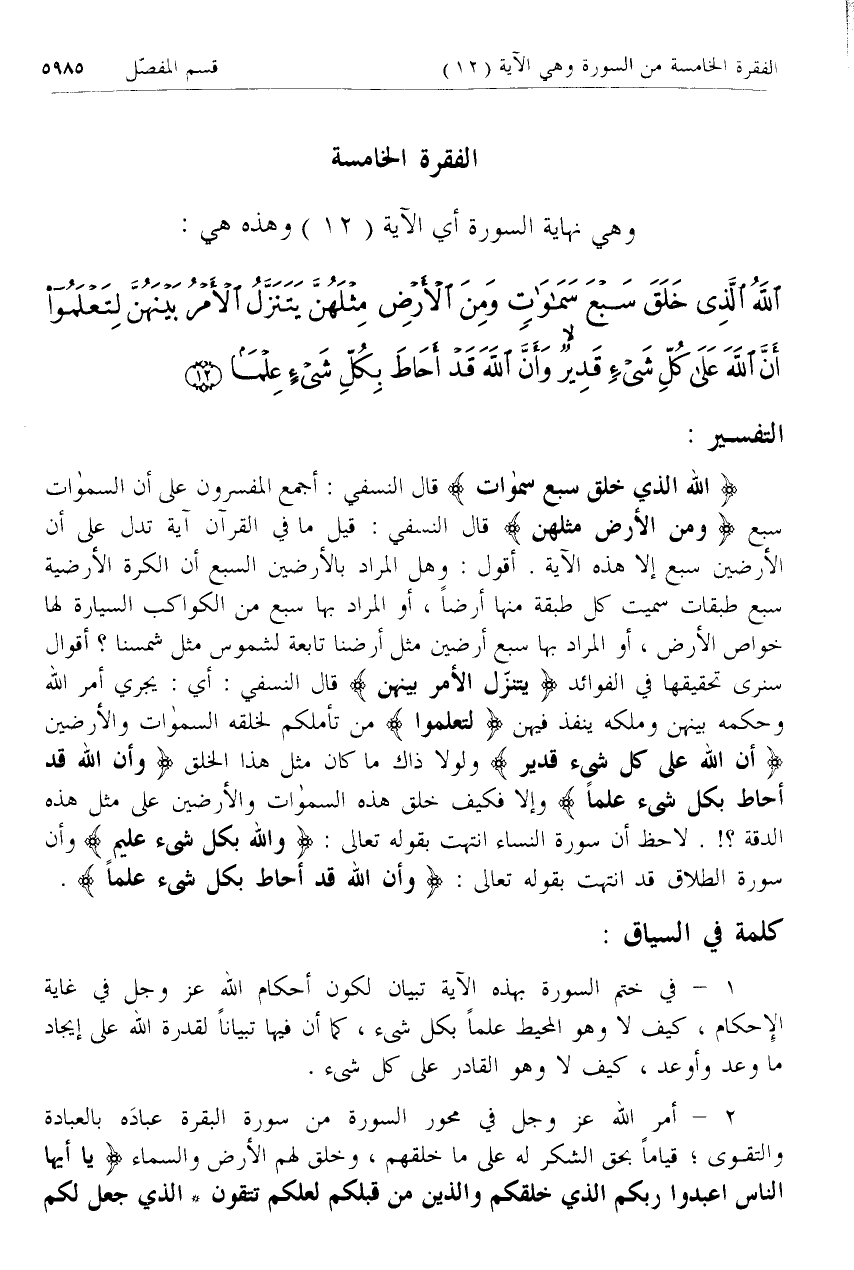 الفقرة الخامسة من السورة وهي الآية ( ١٢ ) قسم المفصّل ٥٩٨٥
الفقرة الخامسة
وهي نهاية السورة أي الآية ( ١٢ ) وهذه هي :
ٱللَّهُ ٱلَّذِى خَلَقَ سَبْعَ سَمَٰوَٰتٍ وَمِنَ ٱلْأَرْضِ مِثْلَهُنَّ يَتَنَزَّلُ ٱلْأَمْرُ بَيْنَهُنَّ لِتَعْلَمُوٓا۟
أَنَّ ٱللَّهَ عَلَىٰ كُلِّ شَىْءٍ قَدِيرٌ ۙ وَأَنَّ ٱللَّهَ قَدْ أَحَاطَ بِكُلِّ شَىْءٍ عِلْمًۢا ۝١٢
التفسير :
﴿ الله الذي خلق سبع سمٰوات ﴾ قال النسفي : أجمع المفسرون على أن السمٰوات
سبع ﴿ ومن الأرض مثلهن ﴾ قال النسفي : قيل ما في القرآن آية تدل على أن
الأرضين سبع إلا هذه الآية . أقول : وهل المراد بالأرضين السبع أن الكرة الأرضية
سبع طبقات سميت كل طبقة منها أرضاً ، أو المراد بها سبع من الكواكب السيارة لها
خواص الأرض ، أو المراد بها سبع أرضين مثل أرضنا تابعة لشموس مثل شمسنا ؟ أقوال
سنرى تحقيقها في الفوائد ﴿ يتنزّل الأمر بينهن ﴾ قال النسفي : أي : يجري أمر الله
وحكمه بينهن وملكه ينفذ فيهن ﴿ لتعلموا ﴾ من تأملكم لخلقه السمٰوات والأرضين
﴿ أن الله على كل شيء قدير ﴾ ولولا ذاك ما كان مثل هذا الخلق ﴿ وأن الله قد
أحاط بكل شيء علماً ﴾ وإلا فكيف خلق هذه السمٰوات والأرضين على مثل هذه
الدقة ؟! . لاحظ أن سورة النساء انتهت بقوله تعالى : ﴿ والله بكل شيء عليم ﴾ وأن
سورة الطلاق قد انتهت بقوله تعالى : ﴿ وأن الله قد أحاط بكل شيء علماً ﴾ .
كلمة في السياق :
١ – في ختم السورة بهذه الآية تبيان لكون أحكام الله عز وجل في غاية
الإحكام ، كيف لا وهو المحيط علماً بكل شيء ، كما أن فيها تبياناً لقدرة الله على إيجاد
ما وعد وأوعد ، كيف لا وهو القادر على كل شيء .
٢ – أمر الله عز وجل في محور السورة من سورة البقرة عبادَه بالعبادة
والتقوى ؛ قياماً بحق الشكر له على ما خلقهم ، وخلق لهم الأرض والسماء ﴿ يا أيها
الناس اعبدوا ربكم الذي خلقكم والذين من قبلكم لعلكم تتقون * الذي جعل لكم